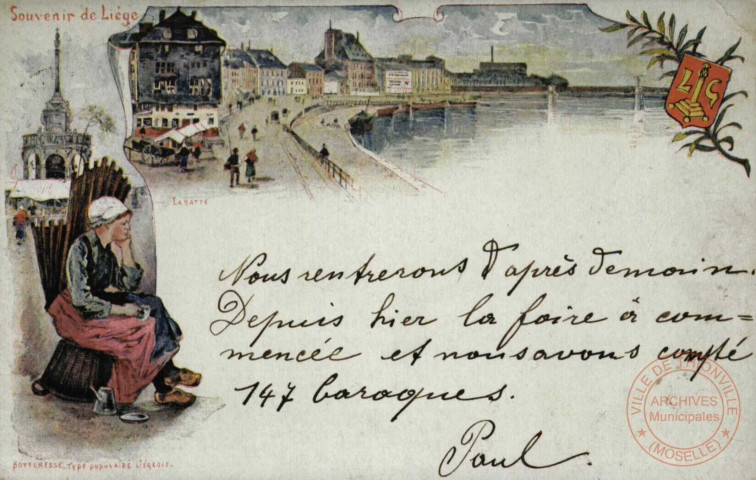 Souvenir de Liége
LIC
LA BATTE
Nous rentrerons d'après demain.
Depuis hier la foire à com=
mencée et nous avons compté
147 baraques.
Paul.
BOTTERESSE, TYPE POPULAIRE LIÉGEOIS.
VILLE DE THIONVILLE
ARCHIVES
Municipales
(MOSELLE)